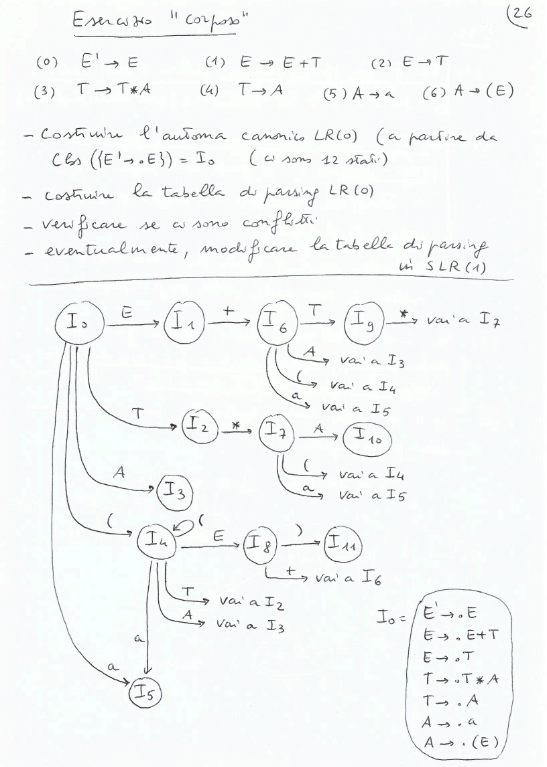 Esercizio "corposo"
(26
(0) E' → E (1) E → E+T (2) E → T
(3) T → T*A (4) T → A (5) A → a (6) A → (E)
- Costruire l'automa canonico LR(0) (a partire da
Clos ({E' → .E}) = I0 (ci sono 12 stati)
- costruire la tabella di parsing LR(0)
- verificare se ci sono conflitti
- eventualmente, modificare la tabella di parsing
in SLR(1)
I0 E I1 + I6 T I9 * vai a I7
A vai a I3
( vai a I4
a vai a I5
T I2 * I7 A I10
( vai a I4
a vai a I5
A I3
( I4 ( E I8 ) I11
+ vai a I6
T vai a I2
A vai a I3
a
a I5
I0 =
E' → .E
E → .E+T
E → .T
T → .T*A
T → .A
A → .a
A → .(E)